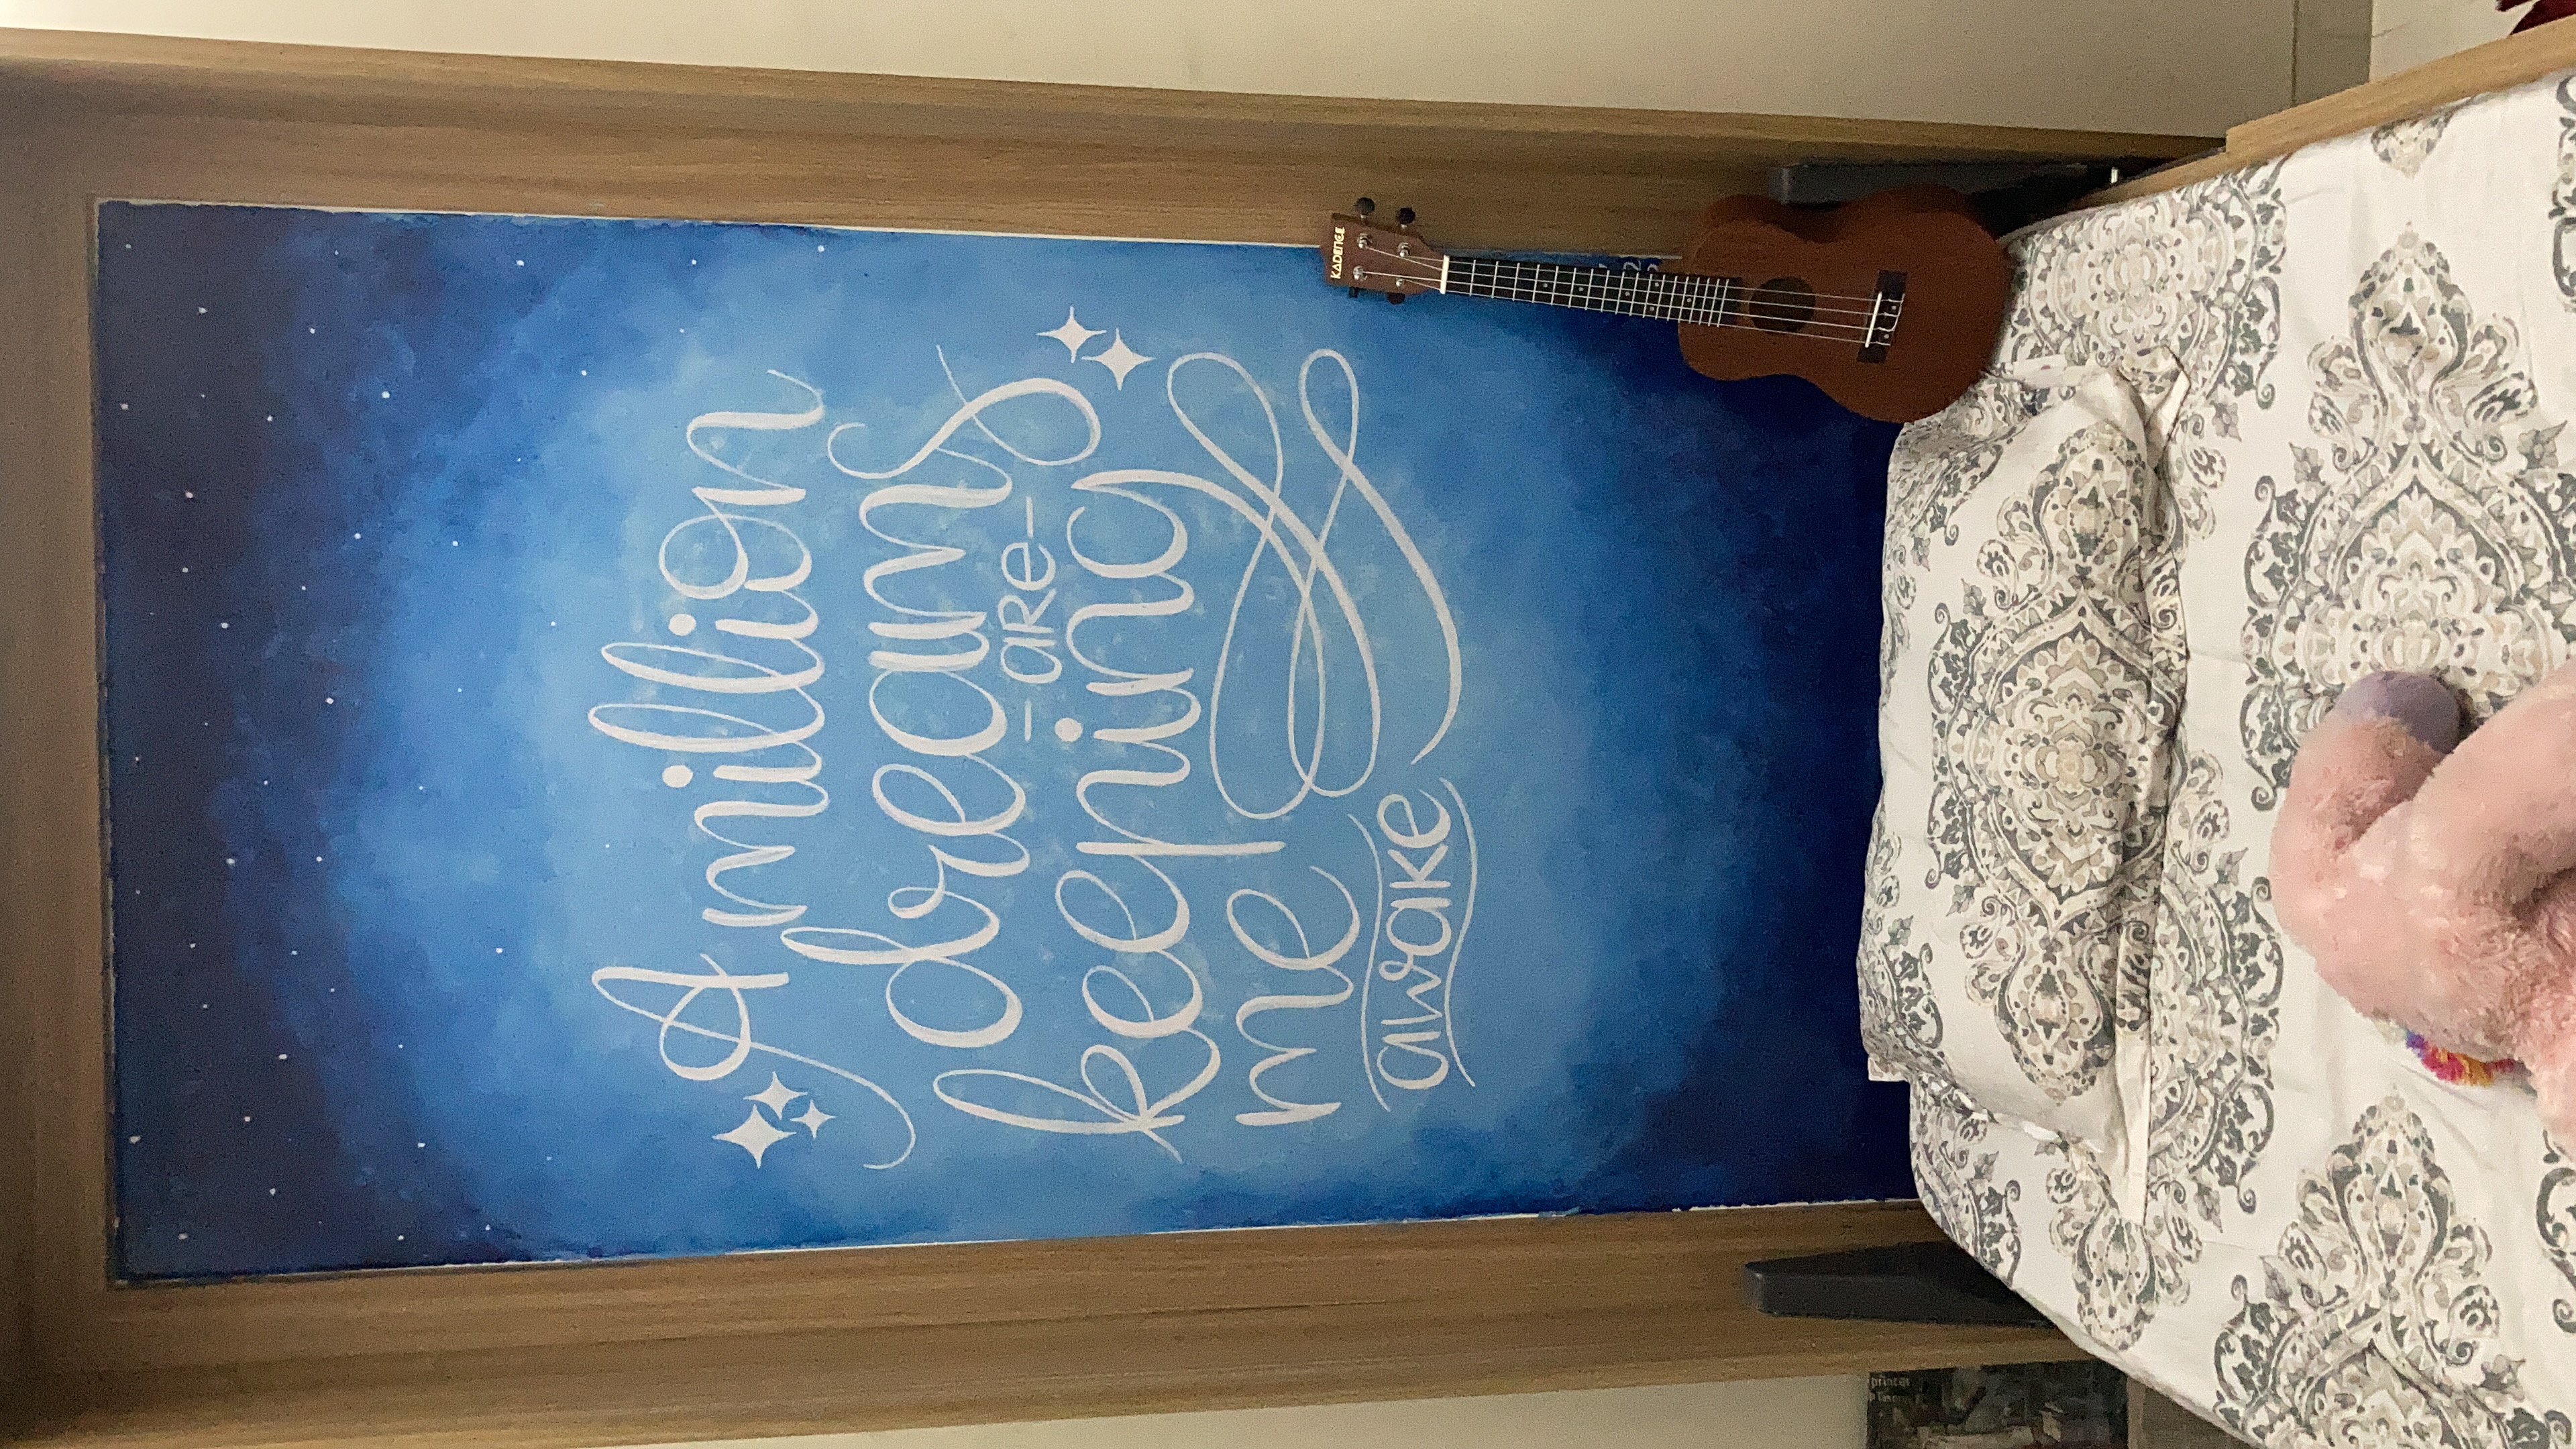 A million
dreams
-are-
keeping
me
awake
KADENCE